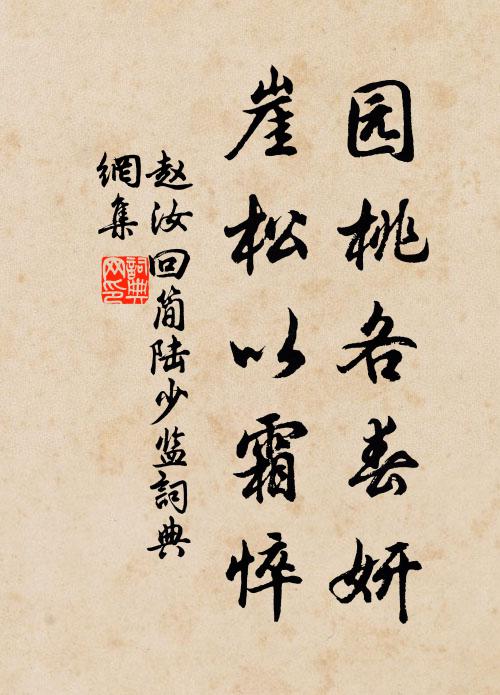 园桃各春妍
崖松以霜悴
赵汝回简陆少监詞典
網集
詞典
网印